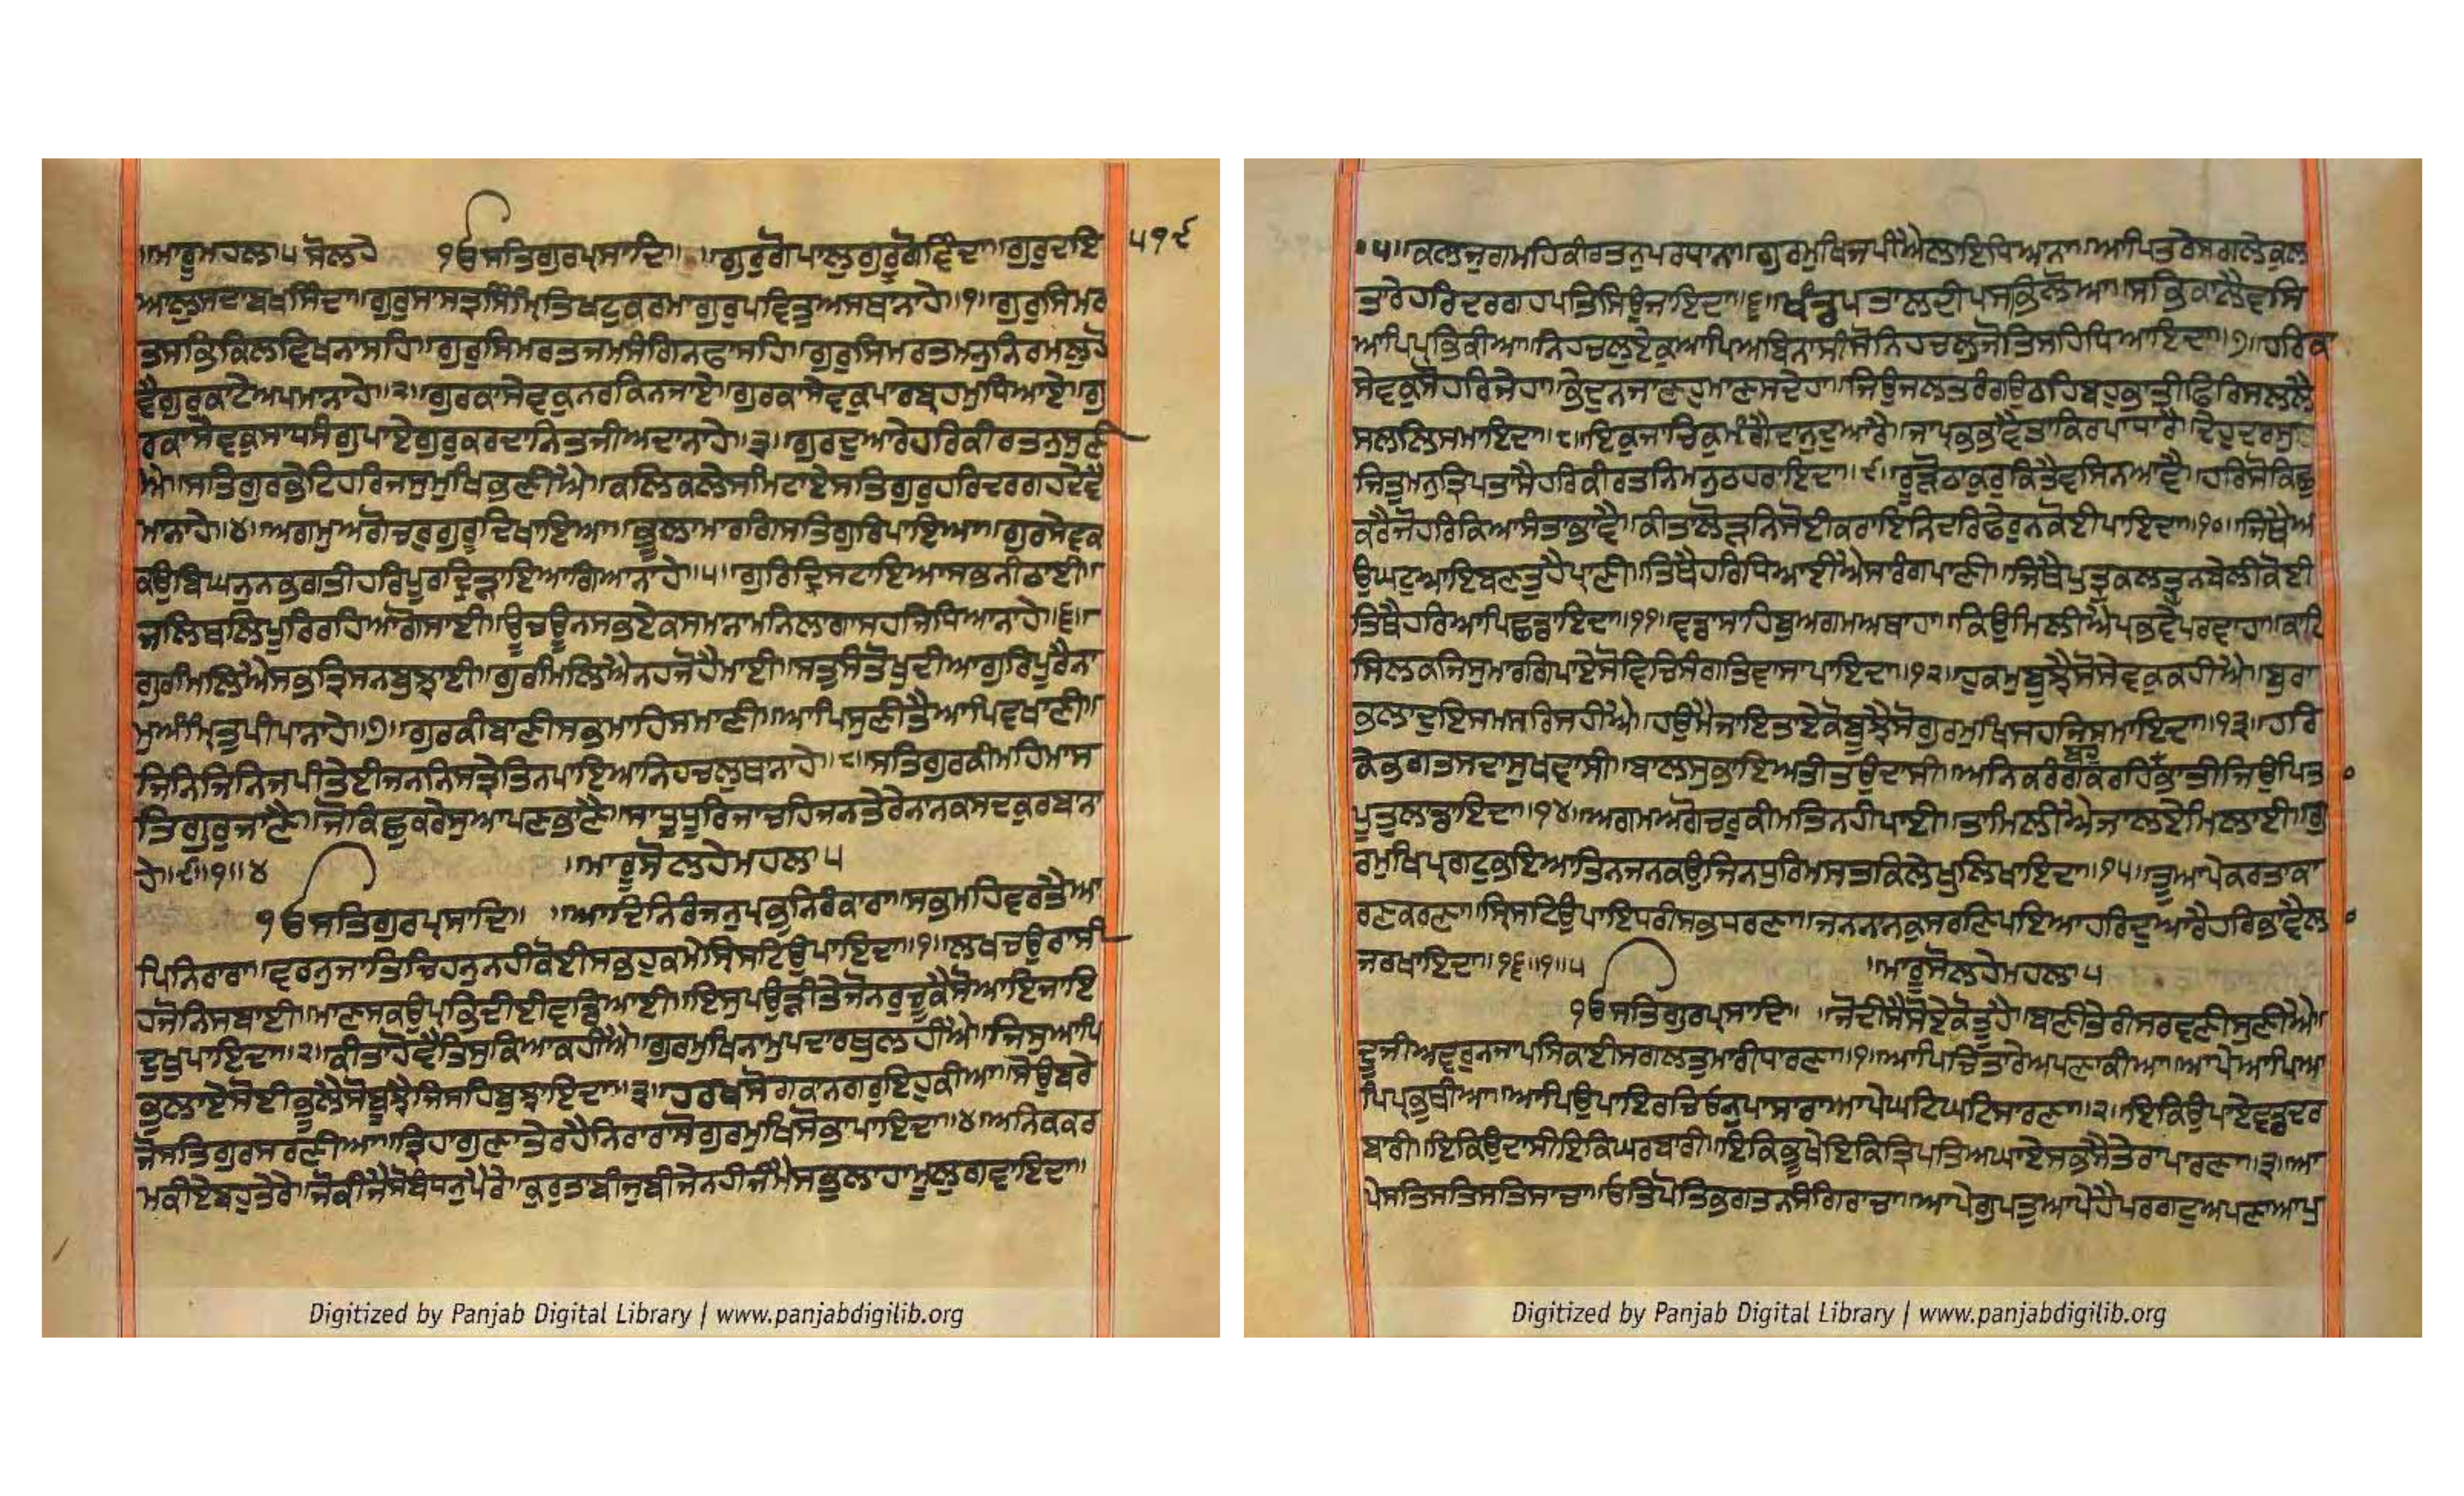 ॥ਮਾਰੂਮਹਲਾ੫ ਸੋਲਹੇ ੴਸਤਿਗੁਰਪ੍ਰਸਾਦਿ॥ ॥ਗੁਰੁਗੋਪਾਲੁਗੁਰੁਗੋਵਿੰਦਾ॥ਗੁਰੁਦਇ
੫੧੯
ਆਲੁਸਦਾਬਖਸਿੰਦਾ॥ਗੁਰੁਸਾਸਤ੍ਰਸਿੰਮ੍ਰਿਤਿਖਟੁਕਰਮਾਗੁਰੁਪਵਿਤ੍ਰੁਅਸਥਾਨਾਹੇ॥੧॥ਗੁਰੁਸਿਮਰ
ਤਸਭਿਕਿਲਵਿਖਨਾਸਹਿ॥ਗੁਰੁਸਿਮਰਤਜਮਸੰਗਿਨਫਾਸਹਿ॥ਗੁਰੁਸਿਮਰਤਮਨੁਨਿਰਮਲੁਹੋ
ਵੈਗੁਰੁਕਾਟੇਅਪਮਾਨਾਹੇ॥੨॥ਗੁਰਕਾਸੇਵਕੁਨਰਕਿਨਜਾਏ॥ਗੁਰਕਾਸੇਵਕੁਪਾਰਬ੍ਰਹਮੁਧਿਆਏ॥ਗੁ
ਰਕਾਸੇਵਕੁਸਾਧਸੰਗੁਪਾਏਗੁਰੁਕਰਦਾਨਿਤਜੀਅਦਾਨਾਹੇ॥੩॥ਗੁਰਦੁਆਰੇਹਰਿਕੀਰਤਨੁਸੁਣੀ
ਐ॥ਸਤਿਗੁਰਭੇਟਿਹਰਿਜਸੁਮੁਖਿਭਣੀਐ॥ਕਲਿਕਲੇਸਮਿਟਾਏਸਤਿਗੁਰੁਹਰਿਦਰਗਹਦੇਵੈ
ਮਾਨਾਹੇ॥੪॥ਅਗਮੁਅਗੋਚਰੁਗੁਰੂਦਿਖਾਇਆ॥ਭੂਲਾਮਾਰਗਿਸਤਿਗੁਰਿਪਾਇਆ॥ਗੁਰਸੇਵਕ
ਕਉਬਿਘਨੁਨਭਗਤੀਹਰਿਪੂਰਦ੍ਰਿੜ੍ਹਾਇਆਗਿਆਨਾਹੇ॥੫॥ਗੁਰਿਦ੍ਰਿਸਟਾਇਆਸਭਨੀਠਾਈ॥
ਜਲਿਥਲਿਪੂਰਿਰਹਿਆਗੋਸਾਈ॥ਊਚਊਨਸਭਏਕਸਮਾਨਾਮਨਿਲਾਗਾਸਹਜਿਧਿਆਨਾਹੇ॥੬॥
ਗੁਰਿਮਿਲਿਐਸਭਤ੍ਰਿਸਨਬੁਝਾਈ॥ਗੁਰਿਮਿਲਿਐਨਹਜੋਹੈਮਾਈ॥ਸਤੁਸੰਤੋਖੁਦੀਆਗੁਰਿਪੂਰੈਨਾ
ਮੁਅੰਮ੍ਰਿਤੁਪੀਪਾਨਾਹੇ॥੭॥ਗੁਰਕੀਬਾਣੀਸਭਮਾਹਿਸਮਾਣੀ॥ਆਪਿਸੁਣੀਤੈਆਪਿਵਖਾਣੀ॥
ਜਿਨਿਜਿਨਿਜਪੀਤੇਈਜਨਨਿਸਤ੍ਰੇਤਿਨਪਾਇਆਨਿਹਚਲੁਥਾਨਾਹੇ॥੮॥ਸਤਿਗੁਰਕੀਮਹਿਮਾਸ
ਤਿਗੁਰੁਜਾਣੈ॥ਜੋਕਿਛੁਕਰੇਸੁਆਪਣਭਾਣੈ॥ਸਾਧੂਧੂਰਿਜਾਚਹਿਜਨਤੇਰੇਨਾਨਕਸਦਕੁਰਬਾਨਾ
ਹੇ॥੯॥੧॥੪ ॥ਮਾਰੂਸੋਲਹੇਮਹਲਾ੫
ੴਸਤਿਗੁਰਪ੍ਰਸਾਦਿ॥ ॥ਆਦਿਨਿਰੰਜਨੁਪ੍ਰਭੁਨਿਰੰਕਾਰਾ॥ਸਭਮਹਿਵਰਤੈਆ
ਪਿਨਿਰਾਰਾ॥ਵਰਨੁਜਾਤਿਚਿਹਨੁਨਹੀਕੋਈਸਭਹੁਕਮੇਸ੍ਰਿਸਟਿਉਪਾਇਦਾ॥੧॥ਲਖਚਉਰਾਸੀ
ਹਜੋਨਿਸਬਾਈ॥ਮਾਣਸਕਉਪ੍ਰਭਿਦੀਈਵਡਿਆਈ॥ਇਸੁਪਉੜੀਤੇਜੋਨਰੁਚੂਕੈਸੋਆਇਜਾਇ
ਦੁਖੁਪਾਇਦਾ॥੨॥ਕੀਤਾਹੋਵੈਤਿਸੁਕਿਆਕਹੀਐ॥ਗੁਰਮੁਖਿਨਾਮੁਪਦਾਰਥੁਲਹੀਐ॥ਜਿਸੁਆਪਿ
ਭੁਲਾਏਸੋਈਭੂਲੈਸੋਬੂਝੈਜਿਸਹਿਬੁਝਾਇਦਾ॥੩॥ਹਰਖਸੋਗਕਾਨਗਰੁਇਹੁਕੀਆ॥ਸੇਉਬਰੇ
ਜੋਸਤਿਗੁਰਸਰਣੀਆ॥ਤ੍ਰਿਹਾਗੁਣਾਤੇਰਹੈਨਿਰਾਰਾਸੋਗੁਰਮੁਖਿਸੋਭਾਪਾਇਦਾ॥੪॥ਅਨਿਕਕਰ
ਮਕੀਏਬਹੁਤੇਰੇ॥ਜੋਕੀਜੈਸੋਬੰਧਨੁਪੈਰੇ॥ਕੁਰੁਤਾਬੀਜੁਬੀਜੇਨਹੀਜੰਮੈਸਭੁਲਾਹਾਮੂਲੁਗਵਾਇਦਾ॥
੫॥ਕਲਜੁਗਮਹਿਕੀਰਤਨੁਪਰਧਾਨਾ॥ਗੁਰਮੁਖਿਜਪੀਐਲਾਇਧਿਆਨਾ॥ਆਪਿਤਰੇਸਗਲੇਕੁਲ
ਤਾਰੇਹਰਿਦਰਗਹਪਤਿਸਿਉਜਾਇਦਾ॥੬॥ਖੰਡਪਤਾਲਦੀਪਸਭਿਲੋਆ॥ਸਭਿਕਾਲੈਵਸਿ
ਆਪਿਪ੍ਰਭਿਕੀਆ॥ਨਿਹਚਲੁਏਕੁਆਪਿਅਬਿਨਾਸੀਸੋਨਿਹਚਲੁਜੋਤਿਸਹਿਧਿਆਇਦਾ॥੭॥ਹਰਿਕਾ
ਸੇਵਕੁਸੋਹਰਿਜੇਹਾ॥ਭੇਦੁਨਜਾਣਹੁਮਾਣਸਦੇਹਾ॥ਜਿਉਜਲਤਰੰਗਉਠਹਿਬਹੁਭਾਤੀਫਿਰਿਸਲਲੈ
ਸਲਲਿਸਮਾਇਦਾ॥੮॥ਇਕੁਜਾਚਿਕੁਮੰਗੈਦਾਨੁਦੁਆਰੈ॥ਜਾਪ੍ਰਭਭਾਵੈਤਾਕਿਰਪਾਧਾਰੈ॥ਦੇਹੁਦਰਸੁ
ਜਿਤੁਮਨੁਤ੍ਰਿਪਤਾਸੈਹਰਿਕੀਰਤਨਿਮਨੁਠਹਰਾਇਦਾ॥੯॥ਰੂੜੋਠਾਕੁਰੁਕਿਤੈਵਸਿਨਆਵੈ॥ਹਰਿਸੋਕਿਛੁ
ਕਰੈਜੋਹਰਿਕਿਆਸੰਤਾਭਾਵੈ॥ਕੀਤਾਲੋੜਨਿਸੋਈਕਰਾਇਨਿਦਰਿਫੇਰੁਨਕੋਈਪਾਇਦਾ॥੧੦॥ਜਿਥੈਅ
ਉਘਟੁਆਇਬਣਤੁਹੈਪ੍ਰਾਣੀ॥ਤਿਥੈਹਰਿਧਿਆਈਐਸਾਰੰਗਪਾਣੀ॥ਜਿਥੈਪੁਤ੍ਰੁਕਲਤ੍ਰੁਨਬੇਲੀਕੋਈ
ਤਿਥੈਹਰਿਆਪਿਛਡਾਇਦਾ॥੧੧॥ਵਡਾਸਾਹਿਬੁਅਗਮਅਥਾਹਾ॥ਕਿਉਮਿਲੀਐਪ੍ਰਭਵੇਪਰਵਾਹਾ॥ਕਾਟਿ
ਸਿਲਕਜਿਸੁਮਾਰਗਿਪਾਏਸੋਵਿਚਿਸੰਗਤਿਵਾਸਾਪਾਇਦਾ॥੧੨॥ਹੁਕਮੁਬੂਝੈਸੋਸੇਵਕੁਕਹੀਐ॥ਬੁਰਾ
ਭਲਾਦੁਇਸਮਸਰਿਸਹੀਐ॥ਹਉਮੈਜਾਇਤਾਏਕੋਬੂਝੈਸੋਗੁਰਮੁਖਿਸਹਜਿਸਮਾਇਦਾ॥੧੩॥ਹਰਿ
ਕੇਭਗਤਸਦਾਸੁਖਵਾਸੀ॥ਬਾਲਸੁਭਾਇਅਤੀਤਉਦਾਸੀ॥ਅਨਿਕਰੰਗਕਰਹਿਭਾਤੀਜਿਉਪਿਤਾ
ਬਹੁ
ਪੂਤੁਲਾਡਾਇਦਾ॥੧੪॥ਅਗਮਅਗੋਚਰੁਕੀਮਤਿਨਹੀਪਾਈ॥ਤਾਮਿਲੀਐਜਾਲਏਮਿਲਾਈ॥ਗੁ
ਰਮੁਖਿਪ੍ਰਗਟੁਭਇਆਤਿਨਜਨਕਉਜਿਨਧੁਰਿਮਸਤਕਿਲੇਖੁਲਿਖਾਇਦਾ॥੧੫॥ਤੂਆਪੇਕਰਤਾਕਾ
ਰਣਕਰਣਾ॥ਸ੍ਰਿਸਟਿਉਪਾਇਧਰੀਸਭਧਰਣਾ॥ਜਨਨਾਨਕੁਸਰਣਿਪਇਆਹਰਿਦੁਆਰੈਹਰਿਭਾਵੈਲ
ਜਰਖਾਇਦਾ॥੧੬॥੧॥੫ ॥ਮਾਰੂਸੋਲਹੇਮਹਲਾ੫
ੴਸਤਿਗੁਰਪ੍ਰਸਾਦਿ॥ ॥ਜੋਦੀਸੈਸੋਏਕੋਤੂਹੈ॥ਬਾਣੀਤੇਰੀਸਰਵਣੀਸੁਣੀਐ॥
ਦੂਜੀਅਵਰੁਨਜਾਪਸਿਕਾਈਸਗਲਤੁਮਾਰੀਧਾਰਣਾ॥੧॥ਆਪਿਚਿਤਾਰੇਅਪਣਾਕੀਆ॥ਆਪੇਆਪਿਆ
ਪਿਪ੍ਰਭੁਥੀਆ॥ਆਪਿਉਪਾਇਰਚਿਓਨੁਪਾਸਾਰਾਆਪੇਘਟਿਘਟਿਸਾਰਣਾ॥੨॥ਇਕਿਉਪਾਏਵਡਦਰ
ਬਾਰੀ॥ਇਕਿਉਦਾਸੀਇਕਿਘਰਬਾਰੀ॥ਇਕਿਭੂਖੇਇਕਿਤ੍ਰਿਪਤਿਅਘਾਏਸਭਸੈਤੇਰਾਪਾਰਣਾ॥੩॥ਆ
ਪੇਸਤਿਸਤਿਸਤਿਸਾਚਾ॥ਓਤਿਪੋਤਿਭਗਤਨਸੰਗਿਰਾਚਾ॥ਆਪੇਗੁਪਤੁਆਪੇਹੈਪਰਗਟੁਅਪਣਾਆਪੁ
Digitized by Panjab Digital Library | www.panjabdigilib.org
Digitized by Panjab Digital Library | www.panjabdigilib.org